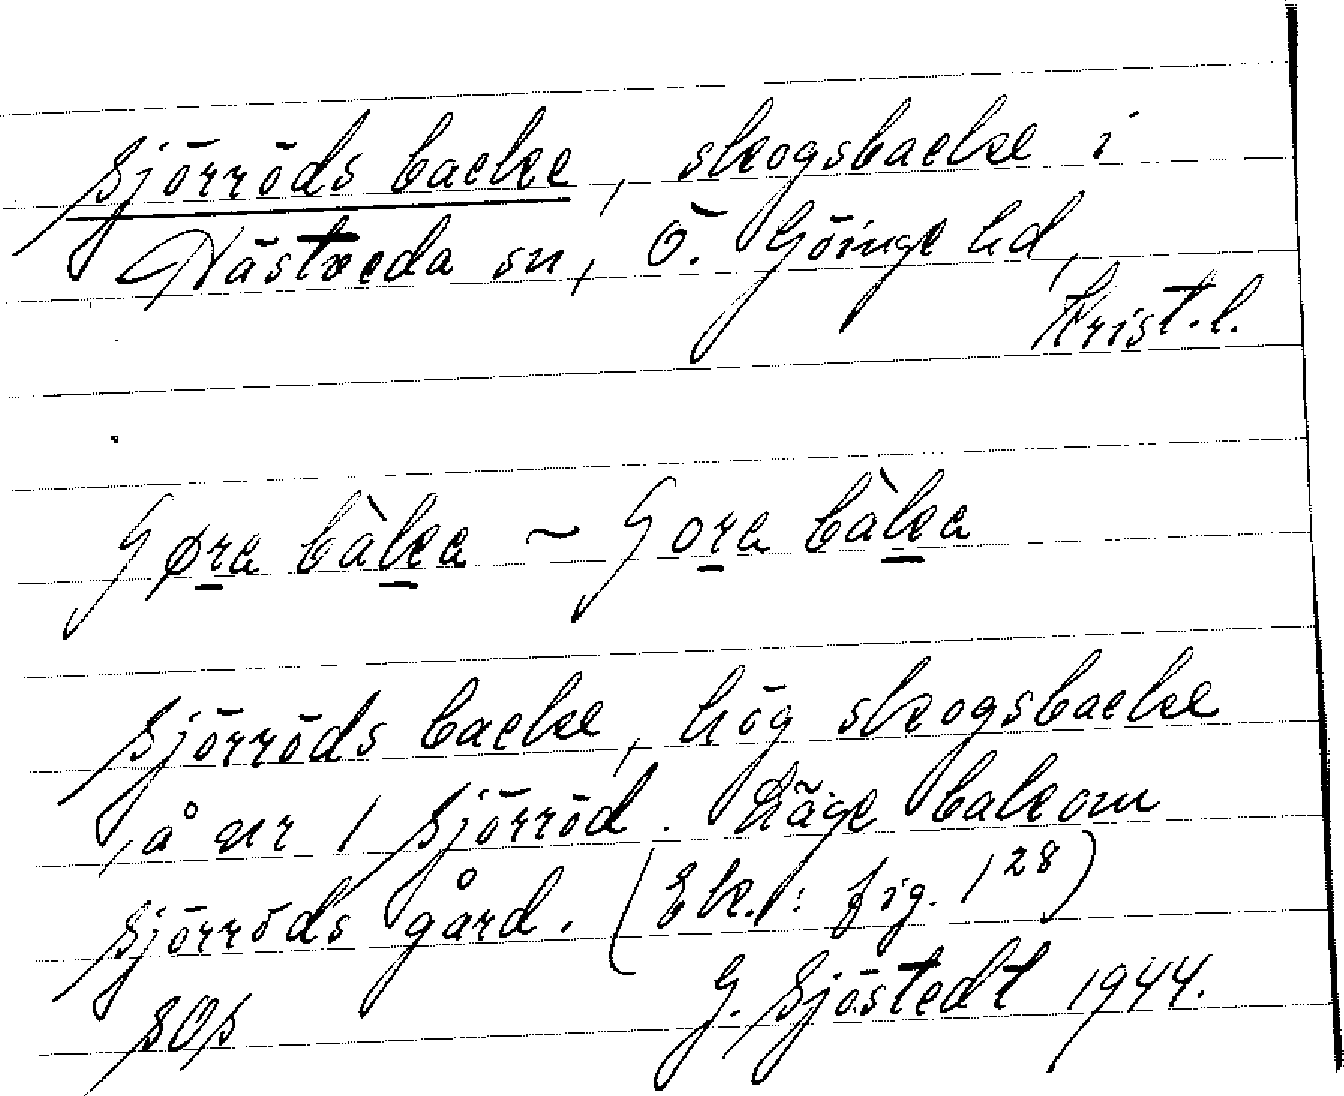 Sjörröds backe, skogsbacke i
Hästveda sn, Ö. Göinge hd,
Krist. l.
ʃøra bàka ~ ʃora bàka
Sjörröds backe, hög skogsbacke
å nr 1 Sjörröd. Läge bakom
Sjörröds gård. (Ek.: fig. 1 28)
SOS G. Sjöstedt 1944.